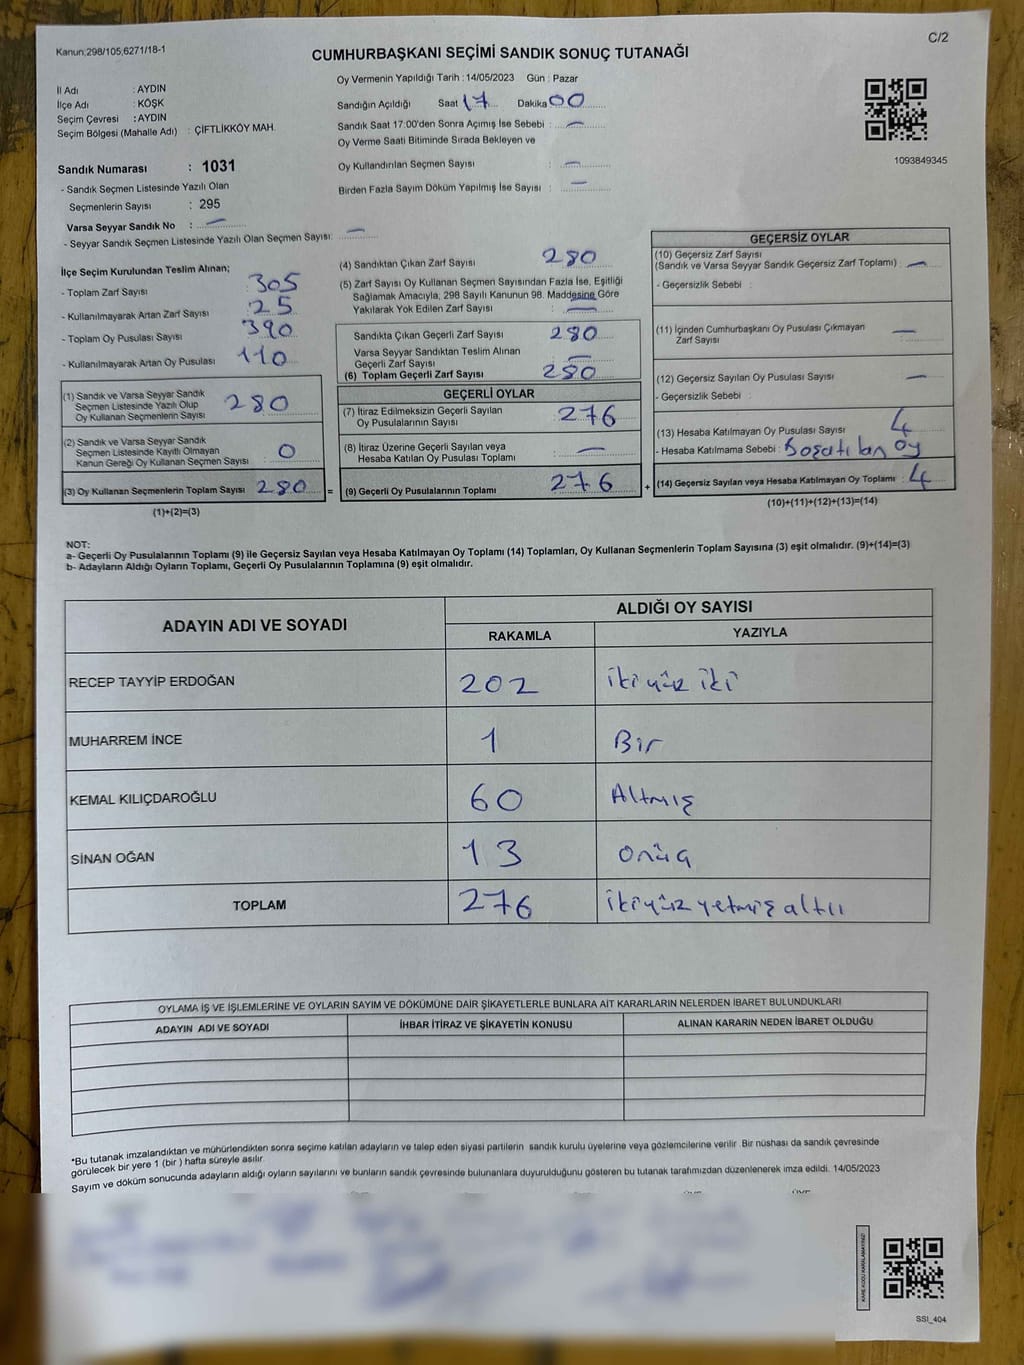 Kanun;298/105,6271/18-1
C/2
CUMHURBAŞKANI SEÇİMİ SANDIK SONUÇ TUTANAĞI
İl Adı : AYDIN
İlçe Adı : KÖŞK
Seçim Çevresi : AYDIN
Seçim Bölgesi (Mahalle Adı) : ÇİFTLİKKÖY MAH.
Sandık Numarası : 1031
- Sandık Seçmen Listesinde Yazılı Olan
Seçmenlerin Sayısı : 295
Varsa Seyyar Sandık No : —
- Seyyar Sandık Seçmen Listesinde Yazılı Olan Seçmen Sayısı: —
Oy Vermenin Yapıldığı Tarih : 14/05/2023 Gün : Pazar
Sandığın Açıldığı Saat 17 Dakika 00
Sandık Saat 17:00'den Sonra Açımış İse Sebebi : —
Oy Verme Saati Bitiminde Sırada Bekleyen ve
Oy Kullandırılan Seçmen Sayısı : —
Birden Fazla Sayım Döküm Yapılmış İse Sayısı : —
1093849345
İlçe Seçim Kurulundan Teslim Alınan;
- Toplam Zarf Sayısı : 305
- Kullanılmayarak Artan Zarf Sayısı : 25
- Toplam Oy Pusulası Sayısı : 390
- Kullanılmayarak Artan Oy Pusulası : 110
(1) Sandık ve Varsa Seyyar Sandık
Seçmen Listesinde Yazılı Olup
Oy Kullanan Seçmenlerin Sayısı : 280
(2) Sandık ve Varsa Seyyar Sandık
Seçmen Listesinde Kayıtlı Olmayan
Kanun Gereği Oy Kullanan Seçmen Sayısı : 0
(3) Oy Kullanan Seçmenlerin Toplam Sayısı : 280
(1)+(2)=(3)
(4) Sandıktan Çıkan Zarf Sayısı : 280
(5) Zarf Sayısı Oy Kullanan Seçmen Sayısından Fazla İse, Eşitliği
Sağlamak Amacıyla, 298 Sayılı Kanunun 98. Maddesine Göre
Yakılarak Yok Edilen Zarf Sayısı : —
Sandıkta Çıkan Geçerli Zarf Sayısı : 280
Varsa Seyyar Sandıktan Teslim Alınan
Geçerli Zarf Sayısı : —
(6) Toplam Geçerli Zarf Sayısı : 280
GEÇERLİ OYLAR
(7) İtiraz Edilmeksizin Geçerli Sayılan
Oy Pusulalarının Sayısı : 276
(8) İtiraz Üzerine Geçerli Sayılan veya
Hesaba Katılan Oy Pusulası Toplamı : —
= (9) Geçerli Oy Pusulalarının Toplamı : 276
GEÇERSİZ OYLAR
(10) Geçersiz Zarf Sayısı
(Sandık ve Varsa Seyyar Sandık Geçersiz Zarf Toplamı) : —
- Geçersizlik Sebebi :
(11) İçinden Cumhurbaşkanı Oy Pusulası Çıkmayan
Zarf Sayısı : —
(12) Geçersiz Sayılan Oy Pusulası Sayısı : —
- Geçersizlik Sebebi :
(13) Hesaba Katılmayan Oy Pusulası Sayısı : 4
- Hesaba Katılmama Sebebi : Boşatılan oy
+ (14) Geçersiz Sayılan veya Hesaba Katılmayan Oy Toplamı : 4
(10)+(11)+(12)+(13)=(14)
NOT:
a- Geçerli Oy Pusulalarının Toplamı (9) ile Geçersiz Sayılan veya Hesaba Katılmayan Oy Toplamı (14) Toplamları, Oy Kullanan Seçmenlerin Toplam Sayısına (3) eşit olmalıdır. (9)+(14)=(3)
b- Adayların Aldığı Oyların Toplamı, Geçerli Oy Pusulalarının Toplamına (9) eşit olmalıdır.
ADAYIN ADI VE SOYADI ALDIĞI OY SAYISI
RAKAMLA YAZIYLA
RECEP TAYYİP ERDOĞAN 202 ikiyüz iki
MUHARREM İNCE 1 Bir
KEMAL KILIÇDAROĞLU 60 Altmış
SİNAN OĞAN 13 onüç
TOPLAM 276 ikiyüz yetmiş altı
OYLAMA İŞ VE İŞLEMLERİNE VE OYLARIN SAYIM VE DÖKÜMÜNE DAİR ŞİKAYETLERLE BUNLARA AİT KARARLARIN NELERDEN İBARET BULUNDUKLARI
ADAYIN ADI VE SOYADI İHBAR İTİRAZ VE ŞİKAYETİN KONUSU ALINAN KARARIN NEDEN İBARET OLDUĞU
*Bu tutanak imzalandıktan ve mühürlendikten sonra seçime katılan adayların ve talep eden siyasi partilerin sandık kurulu üyelerine veya gözlemcilerine verilir .Bir nüshası da sandık çevresinde
görülecek bir yere 1 (bir ) hafta süreyle asılır.
Sayım ve döküm sonucunda adayların aldığı oyların sayılarını ve bunların sandık çevresinde bulunanlara duyurulduğunu gösteren bu tutanak tarafımızdan düzenlenerek imza edildi. 14/05/2023
KARE KODU KARALAMAYINIZ!
SSI_404